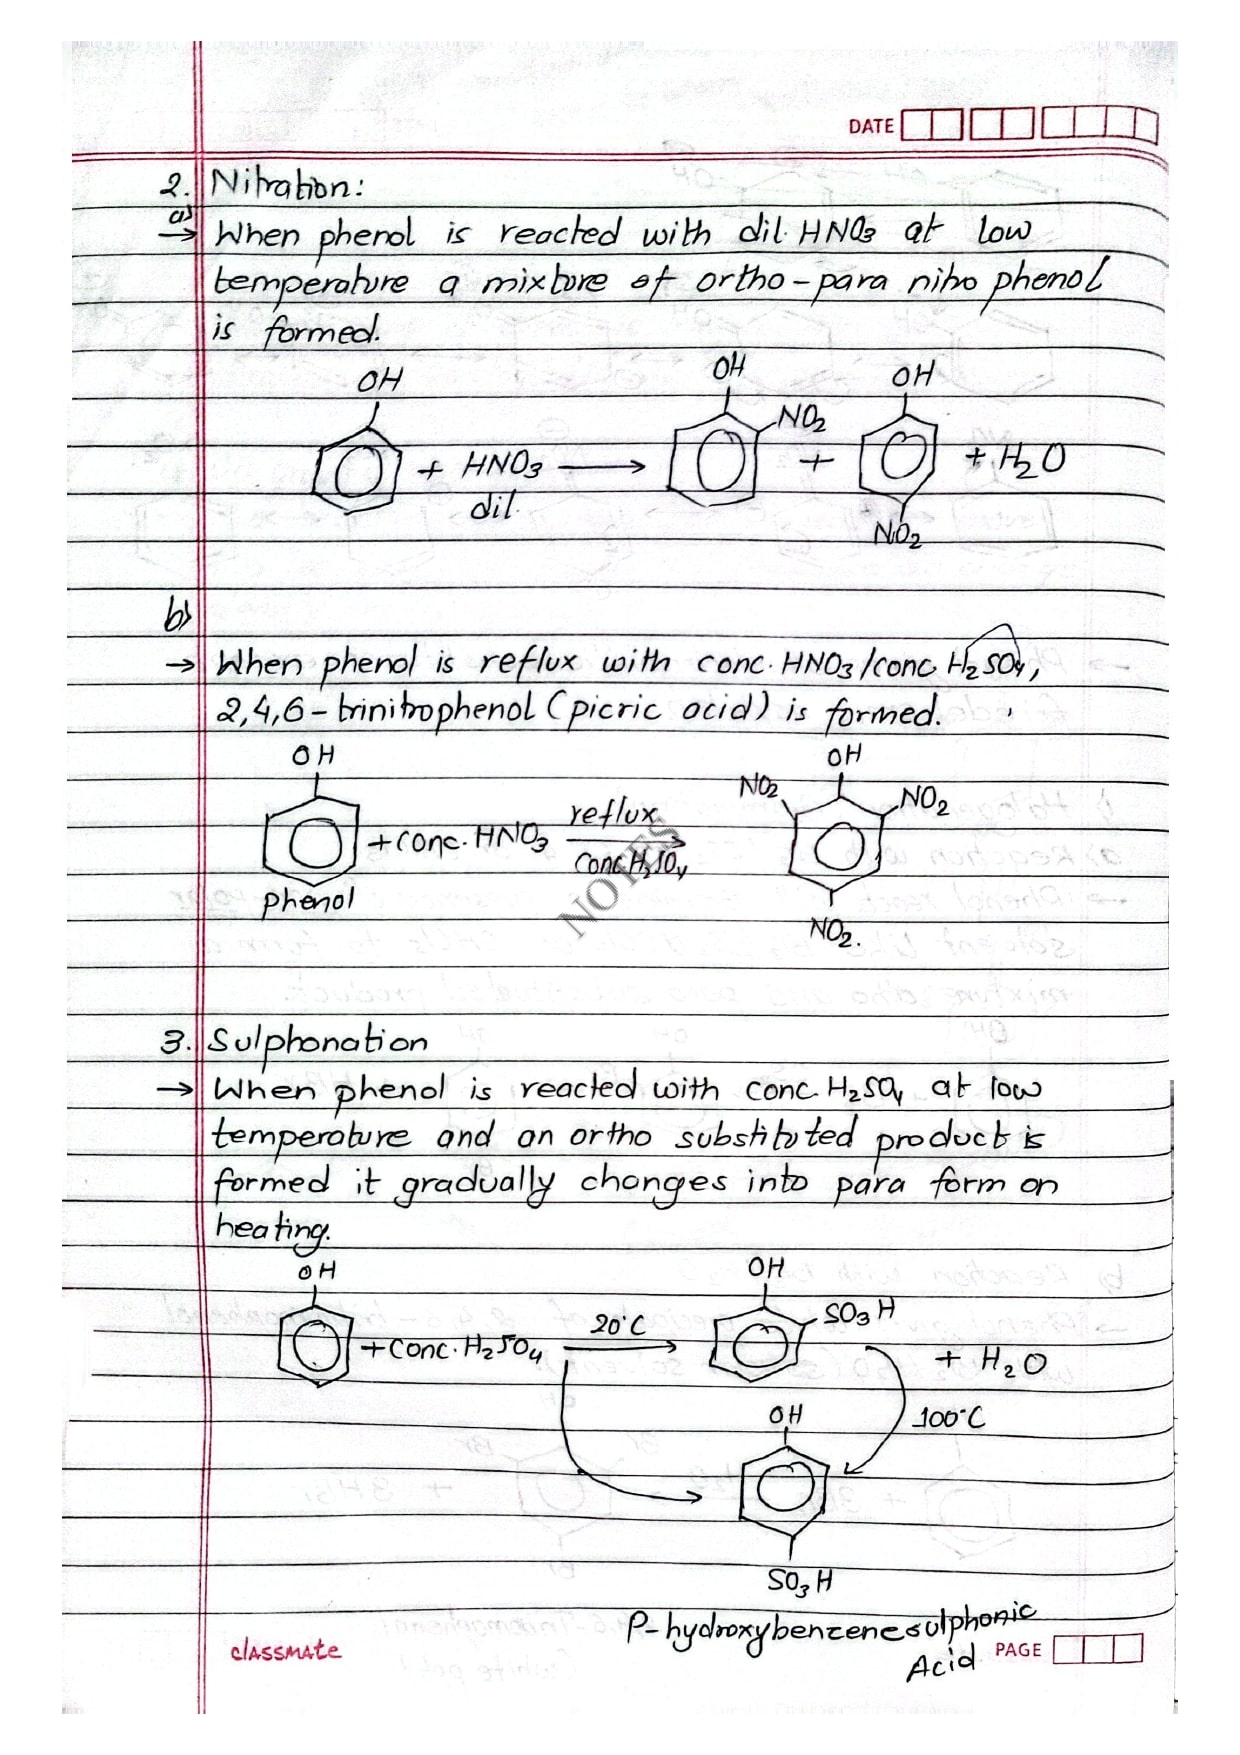 DATE
2. Nitration:
a)
→ When phenol is reacted with dil. HNO3 at low
temperature a mixture of ortho-para nitro phenol
is formed.
OH OH OH
NO2
+ HNO3 → + + H2O
dil.
NO2
b)
→ When phenol is reflux with conc. HNO3/conc. H2SO4,
2,4,6-trinitrophenol (picric acid) is formed.
OH OH
NO2 NO2
+ conc. HNO3 reflux
Conc H2SO4
phenol
NO2.
NOTES
3. Sulphonation
→ When phenol is reacted with conc. H2SO4 at low
temperature and an ortho substituted product is
formed it gradually changes into para form on
heating.
OH OH
SO3H
+ Conc. H2SO4 20°C + H2O
OH 100°C
SO3H
P-hydroxybenzenesulphonic
Acid
classmate PAGE